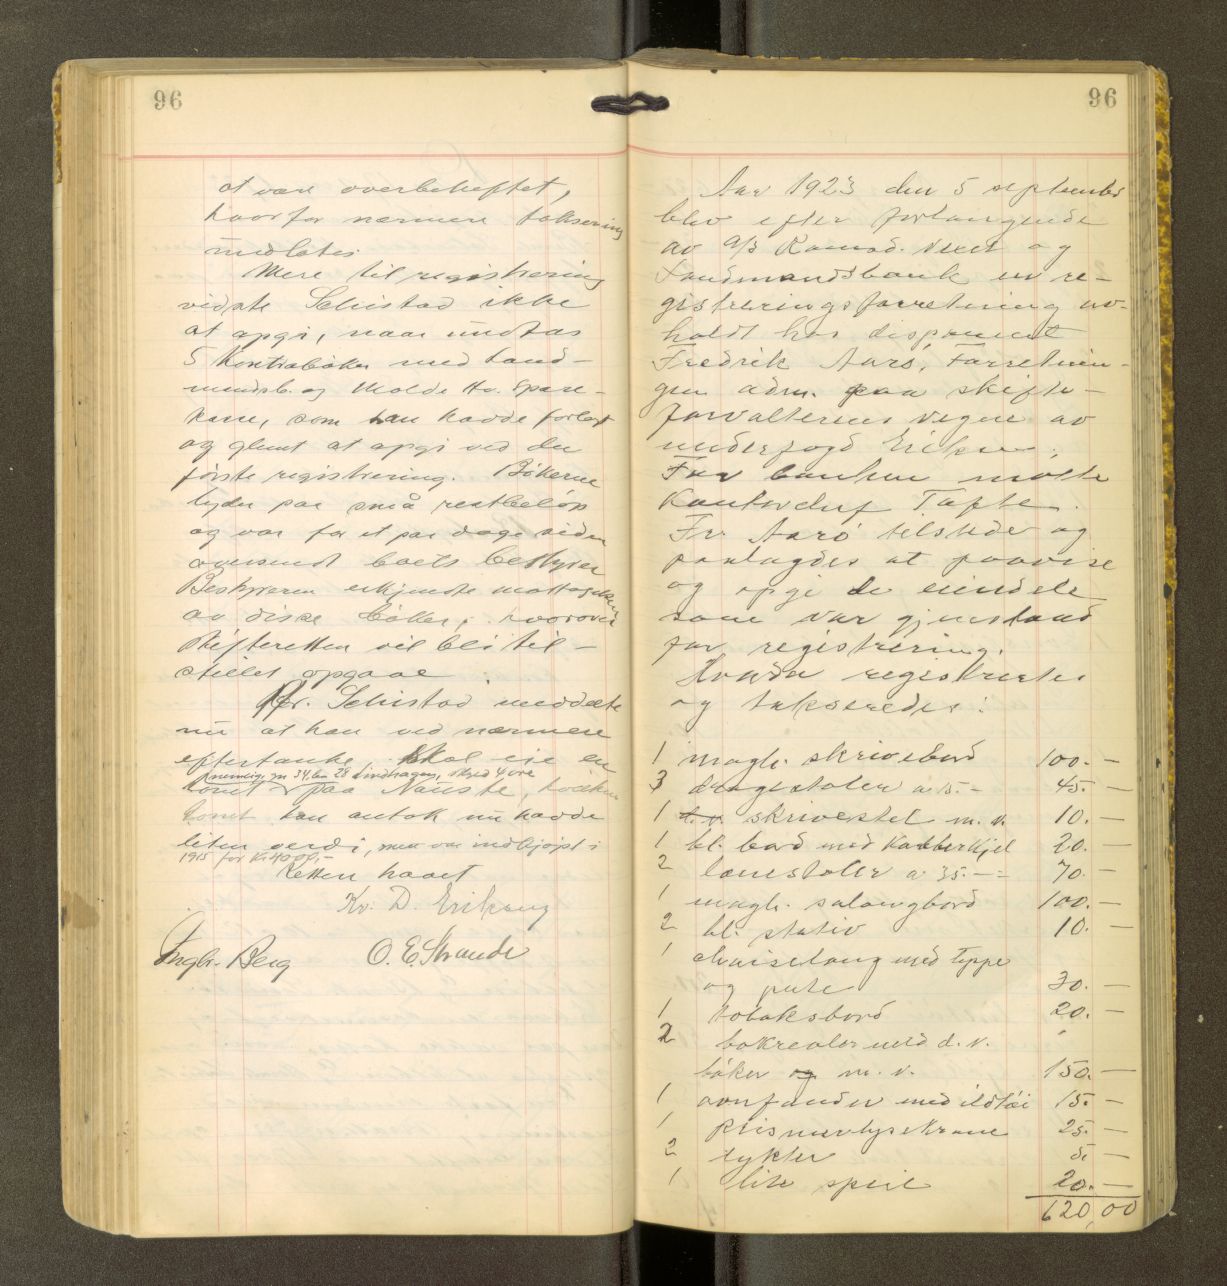 96
at være overbeheftet,
hvorfor nærmere taksering
undlates.
Mere til registrering
vidste Schistad ikke
at opgi, naar undtas
5 kontrabøker med Land-
mandsb. og Molde Hv. Spare-
kasse, som han hadde forlagt
og glemt at opgi ved den
første registrering. Bøkerne
lyder paa små restbeløp
og var for et par dage siden
oversendt boets bestyrer
Bestyreren erkjendte mottagelsen
av disse bøker, hvorover
skifteretten vil bli til-
stillet opgave.
Hr. Schistad meddelte
nu at han ved nærmere
eftertanke skal eie en
gnr. 34, bnr. 28 Lindhagen, skyld 4 øre
tomt paa Nauste, hvilken
tomt han antok nu hadde
liten verdi, men var indkjøpt i
1915 for kr. 4000.-
Retten hævet
Kr. D. Eriksen
Ingbr. Berg O. E. Strande
96
Aar 1923 den 5 september
blev efter forlangende
av A/S Romsd. Vexel og
Landmandsbank en re-
gistreringsforretning av-
holdt hos disponent
Fredrik Aarø. Forretnin-
gen adm. paa skifte-
forvalterens vegne av
underfogd Eriksen.
For banken møtte
Kontorchef Tafte.
Fr. Aarø tilstede og
paalagdes at paavise
og opgi de eiendele
som var gjenstand
for registrering.
Hvorda registrertes
og takseredes:
1 magh. skrivebord 100. —
3 dragestoler a 15.- 45. —
1 skrivestel m. v. 10. —
1 bl. bord med Kobberkjel 20. —
2 lænestoler a 35.— 70. —
1 magh. salongbord 100. —
2 bl. stativ 10. —
1 chaiselong med teppe
og pute 30. —
1 tobaksbord 20. —
2 bokreoler med d. v.
bøker og m. v. 150. —
1 ovnfunder med ildtøi 15. —
1 prismelysekrone 25. —
2 lykter 5. —
1 lite speil 20. —
620,00